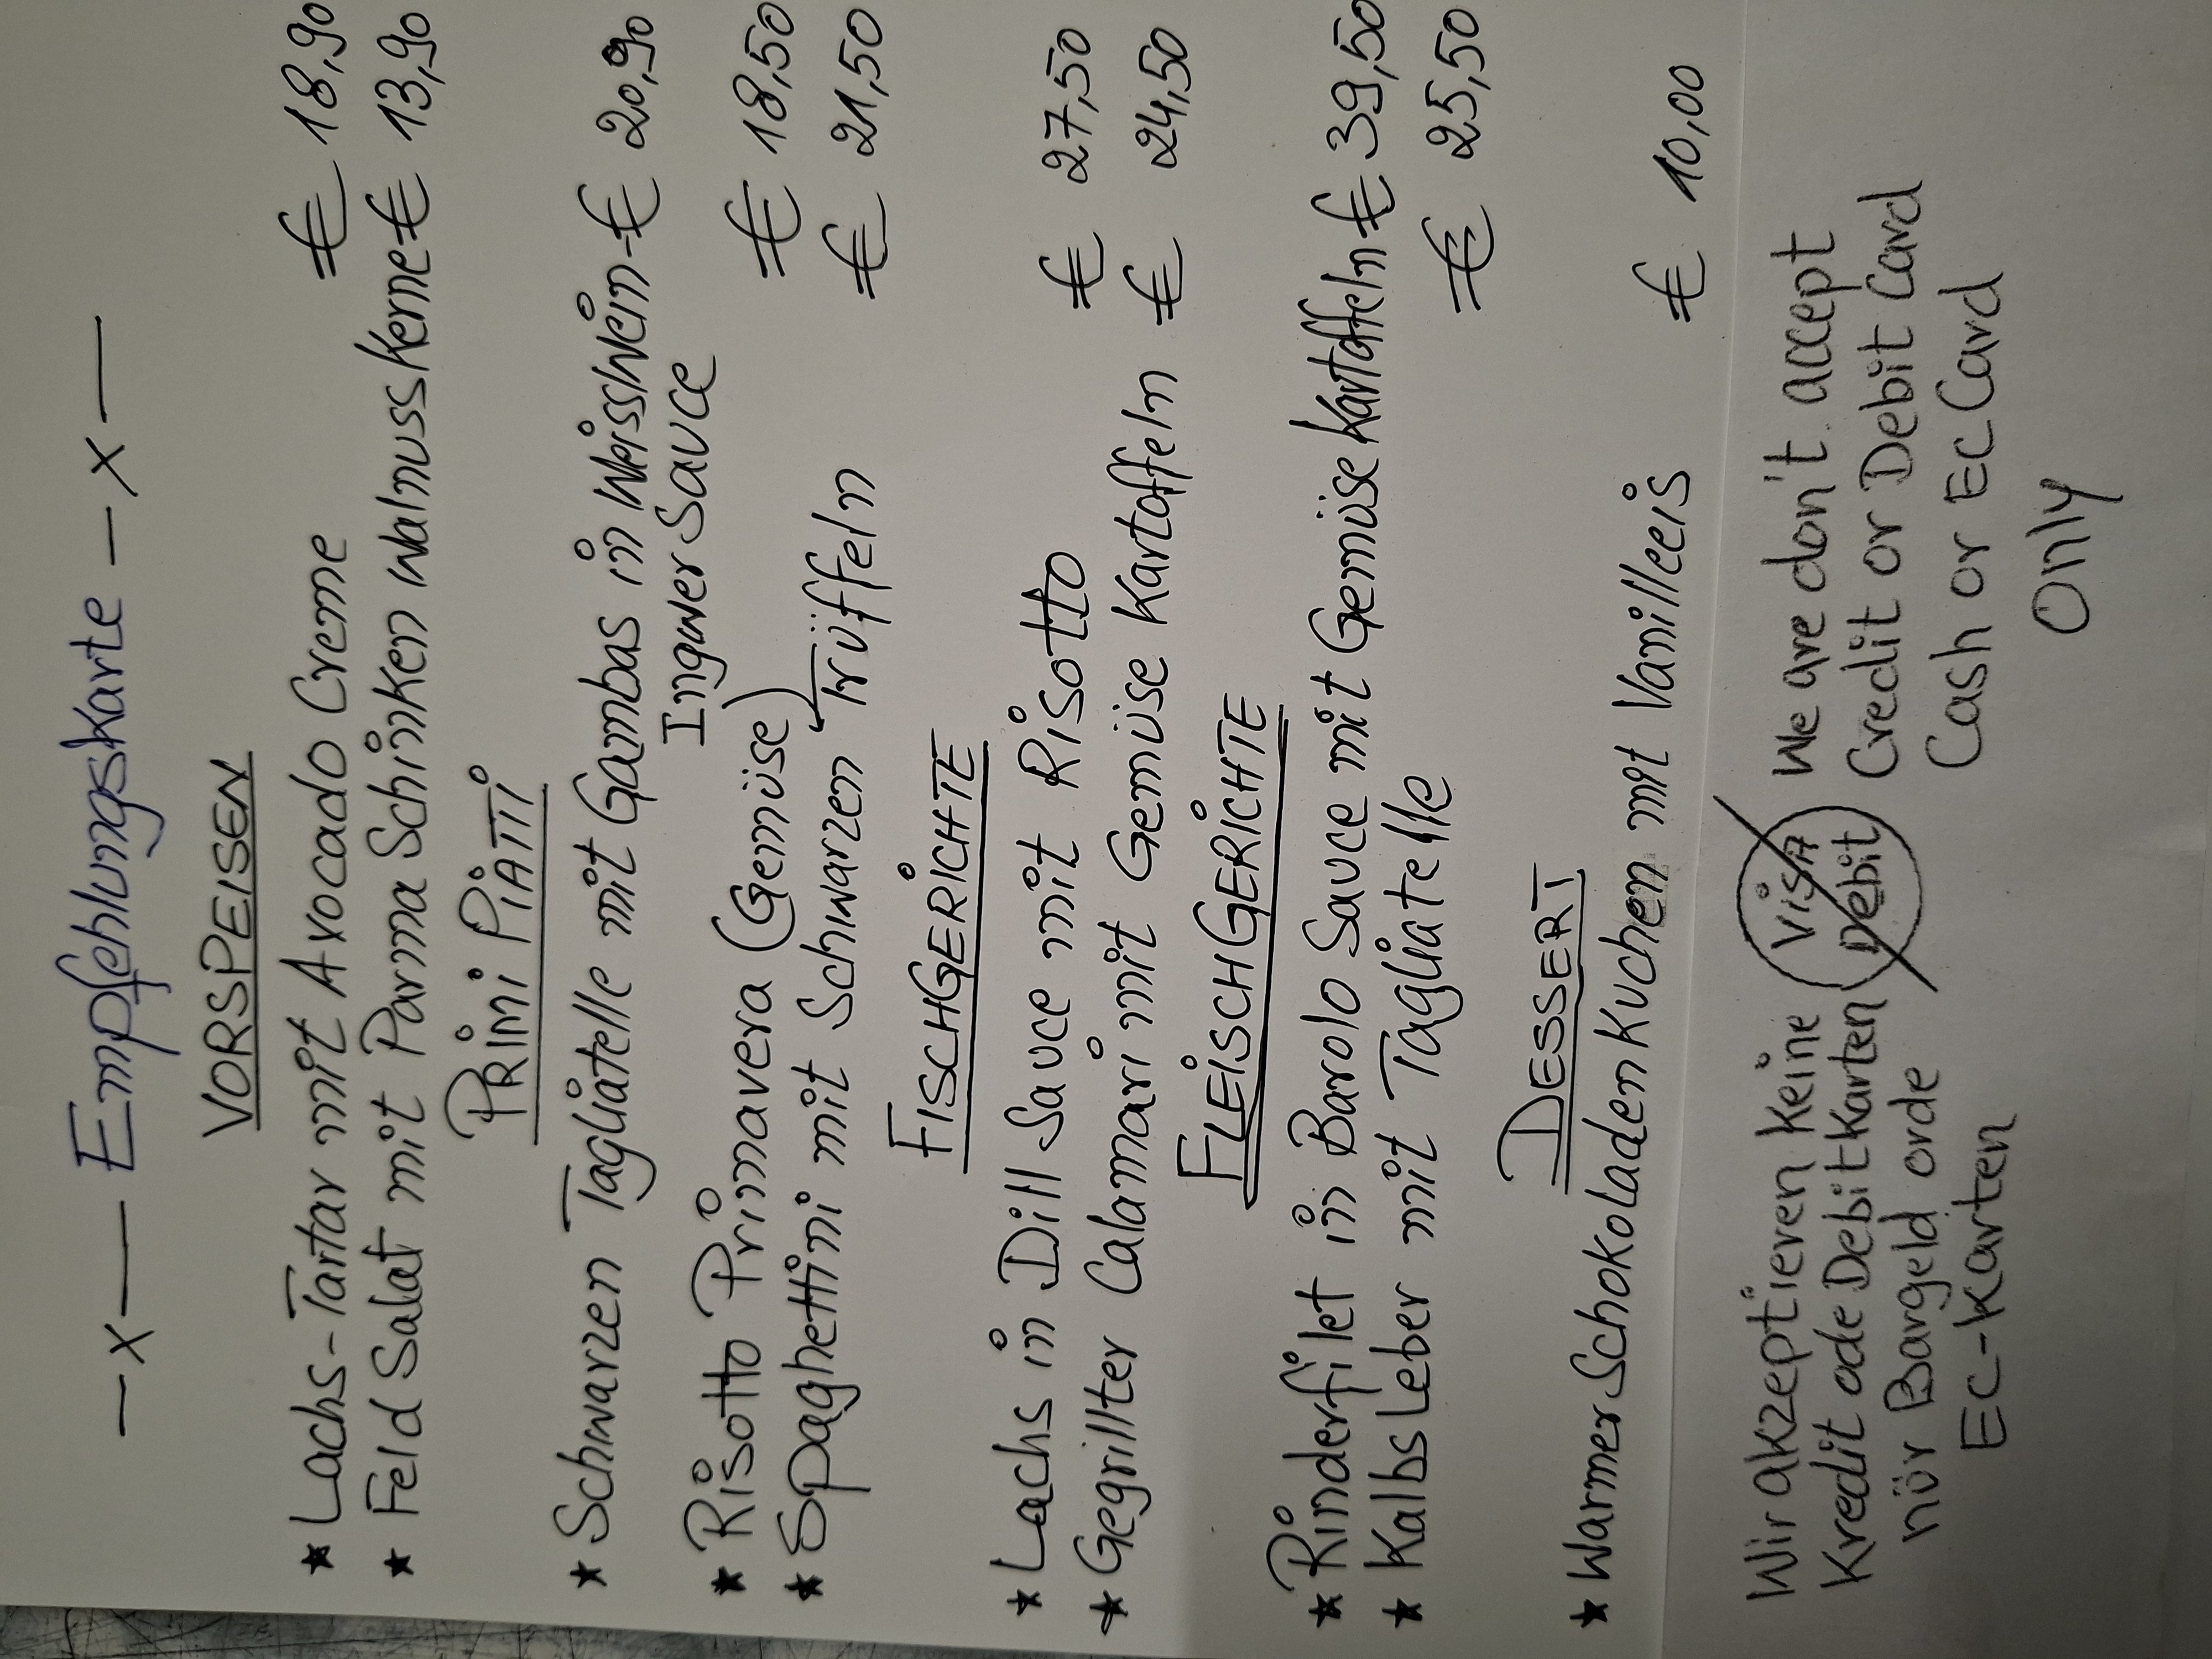 —x— Empfehlungskarte —x—
VORSPEISEN
★ Lachs-Tartar mit Avocado Creme € 18,90
★ Feld Salat mit Parma Schinken Walnusskerne € 13,90
PRiMi PiATTi
★ Schwarzen Tagliatelle mit Gambas in Weisswein- € 20,90
Ingwer Sauce
★ Risotto Primavera (Gemüse) € 18,50
★ Spaghettini mit Schwarzen Trüffeln € 21,50
FiSCHGERiCHTE
★ Lachs in Dill Sauce mit Risotto € 27,50
★ Gegrillter Calamari mit Gemüse Kartoffeln € 24,50
FLEiSCHGERiCHTE
★ Rinderfilet in Barolo Sauce mit Gemüse Kartoffeln € 39,50
★ Kalbs Leber mit Tagliatelle € 25,50
DESSERT
★ Warmer Schokoladen Kuchen mit Vanilleeis € 10,00
Wir akzeptieren keine
Kredit ode Debitkarten
nür Bargeld orde
EC-Karten
ViSA
Debit
We are don't accept
Credit or Debit Card
Cash or EC Card
Only